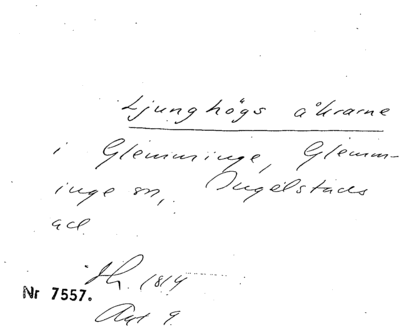 Ljunghögs åkrarne
i Glemminge, Glemm-
inge sn, Ingelstads
hd
Sk. 1814
Nr 7557.
Akt 9